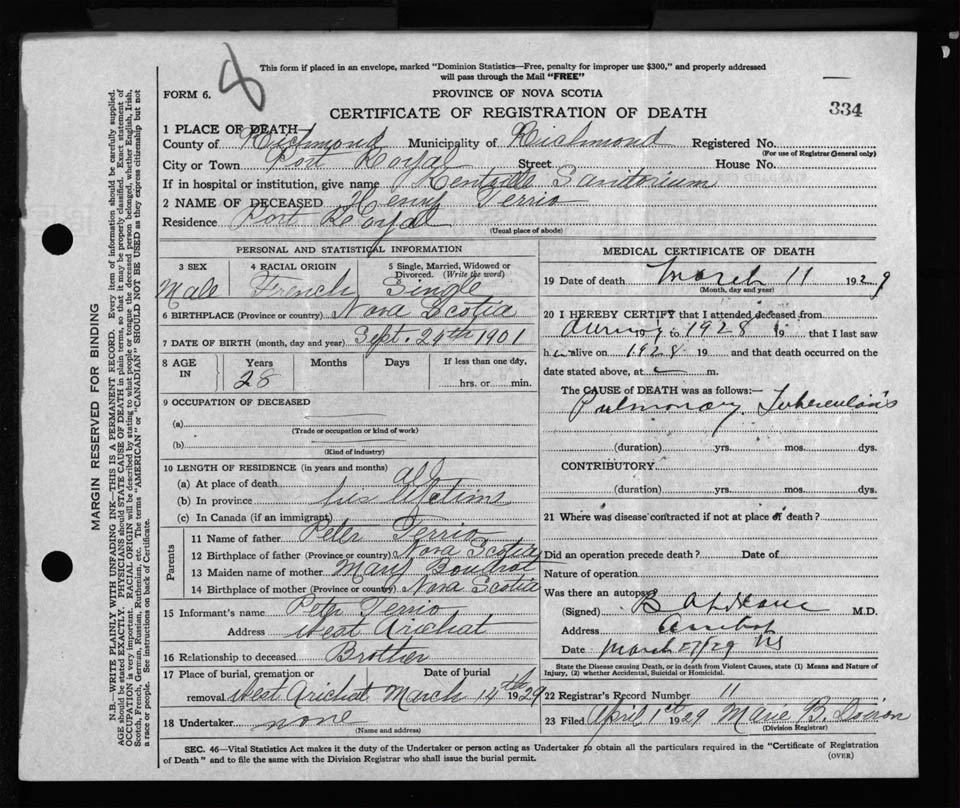 8
This form if placed in an envelope, marked "Dominion Statistics—Free, penalty for improper use $300," and properly addressed
will pass through the Mail "FREE"
FORM 6.
PROVINCE OF NOVA SCOTIA
CERTIFICATE OF REGISTRATION OF DEATH
334
1 PLACE OF DEATH—
County of Richmond Municipality of Richmond Registered No.
(For use of Registrar General only)
City or Town Port Royal Street House No.
If in hospital or institution, give name Kentville Sanitorium
2 NAME OF DECEASED Henry Terrio
Residence Port Royal
(Usual place of abode)
PERSONAL AND STATISTICAL INFORMATION
3 SEX 4 RACIAL ORIGIN 5 Single, Married, Widowed or
Divorced. (Write the word)
Male French Single
6 BIRTHPLACE (Province or country) Nova Scotia
7 DATE OF BIRTH (month, day and year) Sept. 29th 1901
8 AGE
IN
Years Months Days If less than one day,
28 hrs. or min.
9 OCCUPATION OF DECEASED
(a)
(Trade or occupation or kind of work)
(b)
(Kind of industry)
10 LENGTH OF RESIDENCE (in years and months)
(a) At place of death all
(b) In province his lifetime
(c) In Canada (if an immigrant)
Parents
11 Name of father Peter Terrio
12 Birthplace of father (Province or country) Nova Scotia
13 Maiden name of mother Mary Boudrot
14 Birthplace of mother (Province or country) Nova Scotia
15 Informant's name Peter Terrio
Address West Arichat
16 Relationship to deceased Brother
17 Place of burial, cremation or Date of burial
removal West Arichat March 14th 1929
18 Undertaker none
(Name and address)
MEDICAL CERTIFICATE OF DEATH
19 Date of death March 11 1929
(Month, day and year)
20 I HEREBY CERTIFY that I attended deceased from
during to 1928 19 that I last saw
h alive on 1928 19 and that death occurred on the
date stated above, at m.
The CAUSE of DEATH was as follows:—
Pulmonary Tuberculosis
(duration) yrs. mos. dys.
CONTRIBUTORY
(duration) yrs. mos. dys.
21 Where was disease contracted if not at place of death?
Did an operation precede death? Date of
Nature of operation
Was there an autopsy
(Signed) M.D.
Address
Date March 27/29
State the Disease causing Death, or in death from Violent Causes, state (1) Means and Nature of
Injury, (2) whether Accidental, Suicidal or Homicidal.
22 Registrar's Record Number 11
23 Filed April 1st 1929 Marie B. Doiron
(Division Registrar)
SEC. 46—Vital Statistics Act makes it the duty of the Undertaker or person acting as Undertaker to obtain all the particulars required in the "Certificate of Registration
of Death" and to file the same with the Division Registrar who shall issue the burial permit.
(OVER)
MARGIN RESERVED FOR BINDING
N.B.—WRITE PLAINLY WITH UNFADING INK—THIS IS A PERMANENT RECORD. Every item of information should be carefully supplied.
AGE should be stated EXACTLY. PHYSICIANS should STATE CAUSE OF DEATH in plain terms, so that it may be properly classified. Exact statement of
OCCUPATION is very important. RACIAL ORIGIN will be described by stating to what people or tongue the deceased person belonged, whether English, Irish,
Scotch, French, German, Russian, Ruthenian, etc. The terms "AMERICAN" or "CANADIAN" SHOULD NOT BE USED as they express citizenship but not
a race or people. See instructions on back of Certificate.